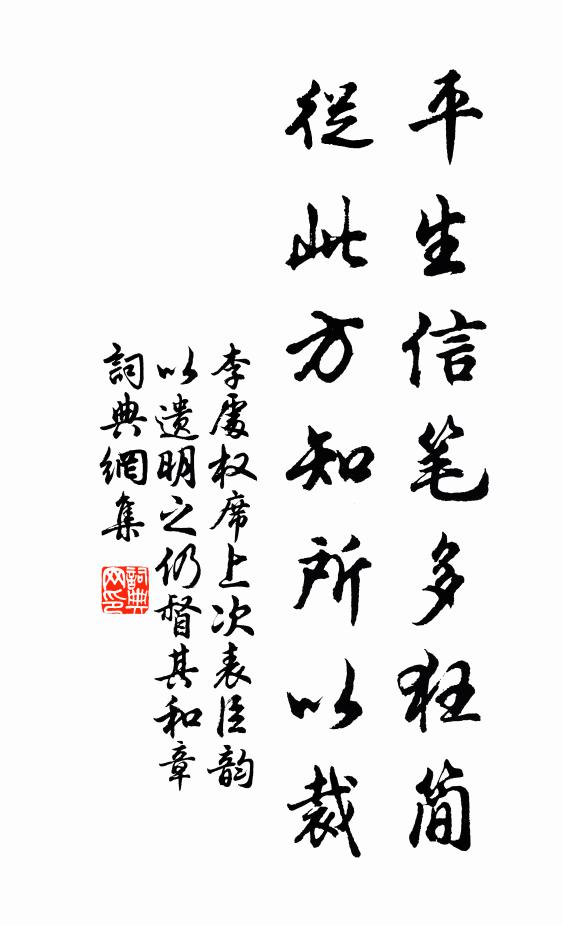 平生信笔多狂简
從此方知所以裁
李處权席上次表臣韵
以遗明之仍督其和章
詞典網集
詞典
网印